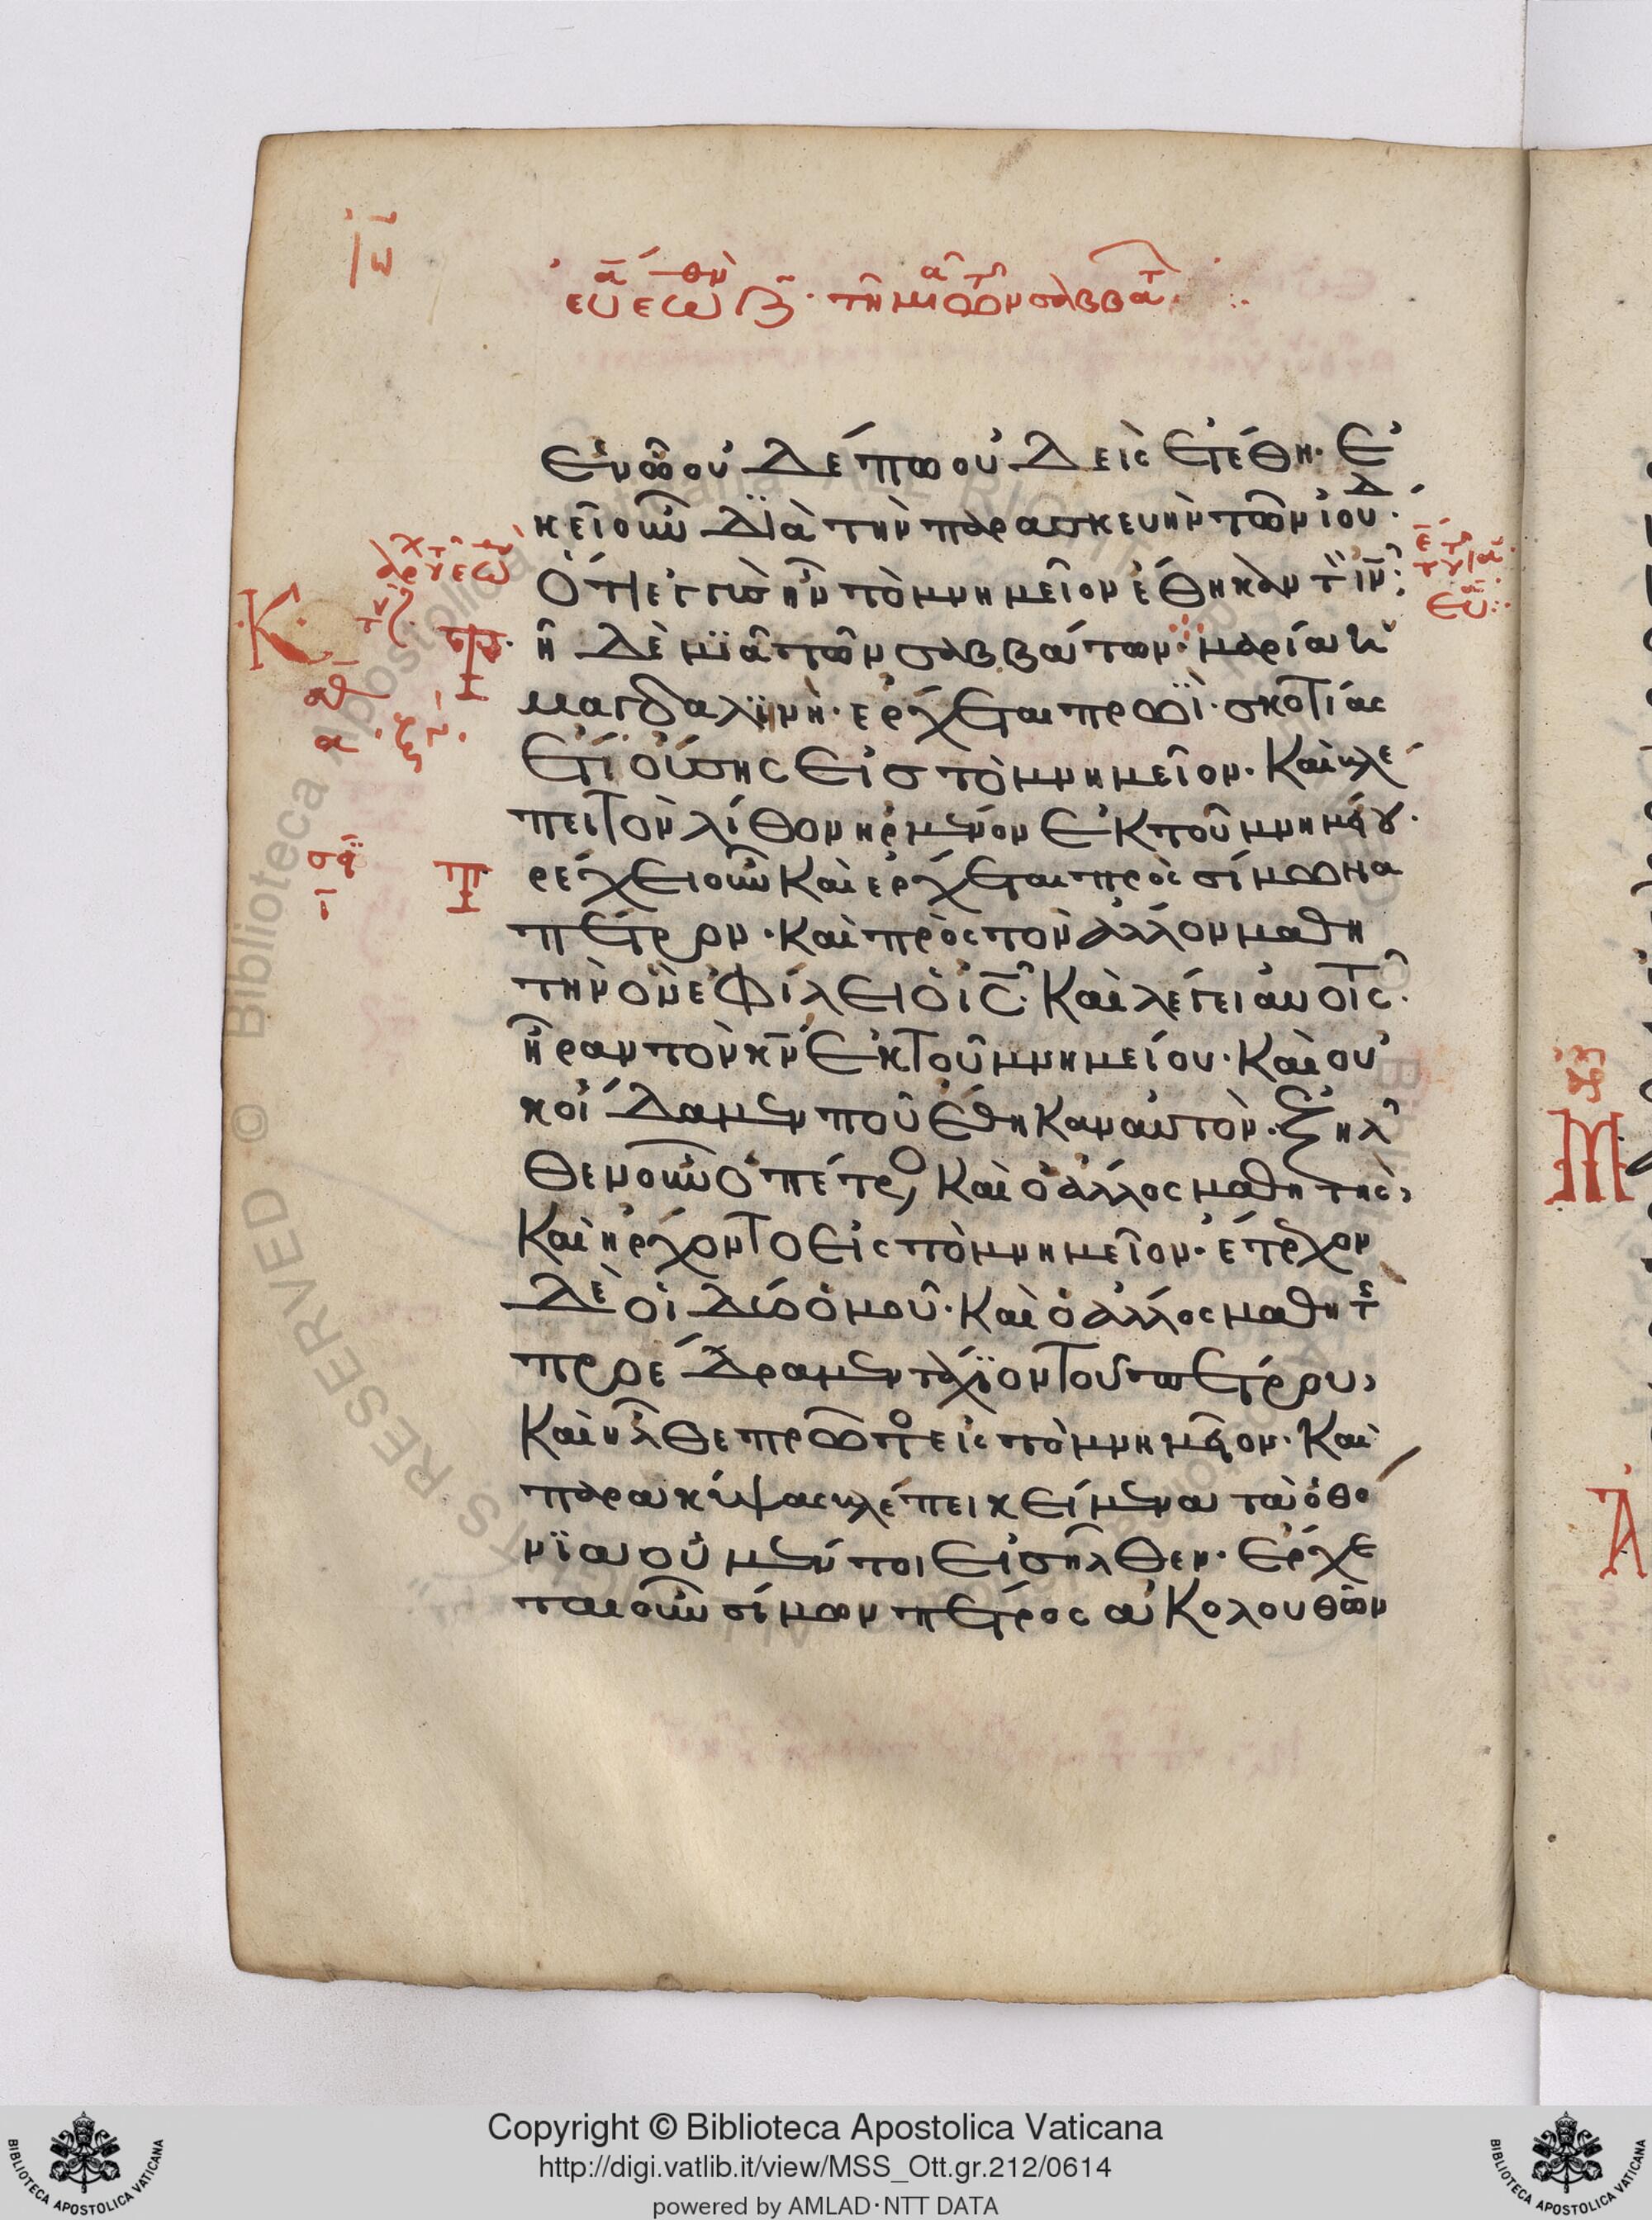 ἰω
εὐα ἑωθν ζ· τῆ μιᾶ τῶν σαββατ
Ἐν ᾧ οὐδέπω οὐδεὶς ἐτέθη· ἐ
κεῖ οὖν διὰ τὴν παρασκευὴν τῶν ἰουδ·
ὅτι ἐγγὺς ἦν τὸ μνημεῖον ἔθηκαν τὸν ιν:
τῆ δὲ μϊᾶ τῶν σαββάτων· μαρία ἡ
μαγδαλϊνὴ· ἔρχεται πρωῒ· σκοτίας
ἔτι οὔσης εἰς τὸ μνημεῖον· Καὶ βλέ
πει τὸν λίθον ἠρμένον ἐκ τοῦ μνημείου·
τρέχει οὖν Καὶ ἔρχεται πρὸς σίμωνα
πέτρον· Καὶ πρὸς τὸν ἄλλον μαθη
τὴν ὃν ἐφίλει ὁ ις· Καὶ λέγει αὐτοῖς·
ἦραν τὸν κν ἐκ τοῦ μνημείου· Καὶ οὐ
κ οἴδαμεν ποῦ ἔθηκαν αὐτὸν· ἐξῆλ
θεν οὖν ὁ πέτρος Καὶ ὁ ἄλλος μαθητὴς,
Καὶ ἤρχοντο εἰς τὸ μνημεῖον· ἔτρεχον
δὲ οἱ δύο ὁμοῦ· Καὶ ὁ ἄλλος μαθητὴς
προέδραμεν τάχϊον τοῦ πέτρου,
Καὶ ἦλθε πρῶτος εἰς τὸ μνημεῖον· Καὶ
παρακύψας βλέπει κείμενα τὰ ὀθό
νϊα οὐ μέντοι εἰσῆλθεν· ἔρχε
ται οὖν σίμων πέτρος ἀκολουθῶν
Copyright © Biblioteca Apostolica Vaticana
http://digi.vatlib.it/view/MSS_Ott.gr.212/0614
powered by AMLAD·NTT DATA
BIBLIOTECA APOSTOLICA VATICANA
BIBLIOTECA APOSTOLICA VATICANA